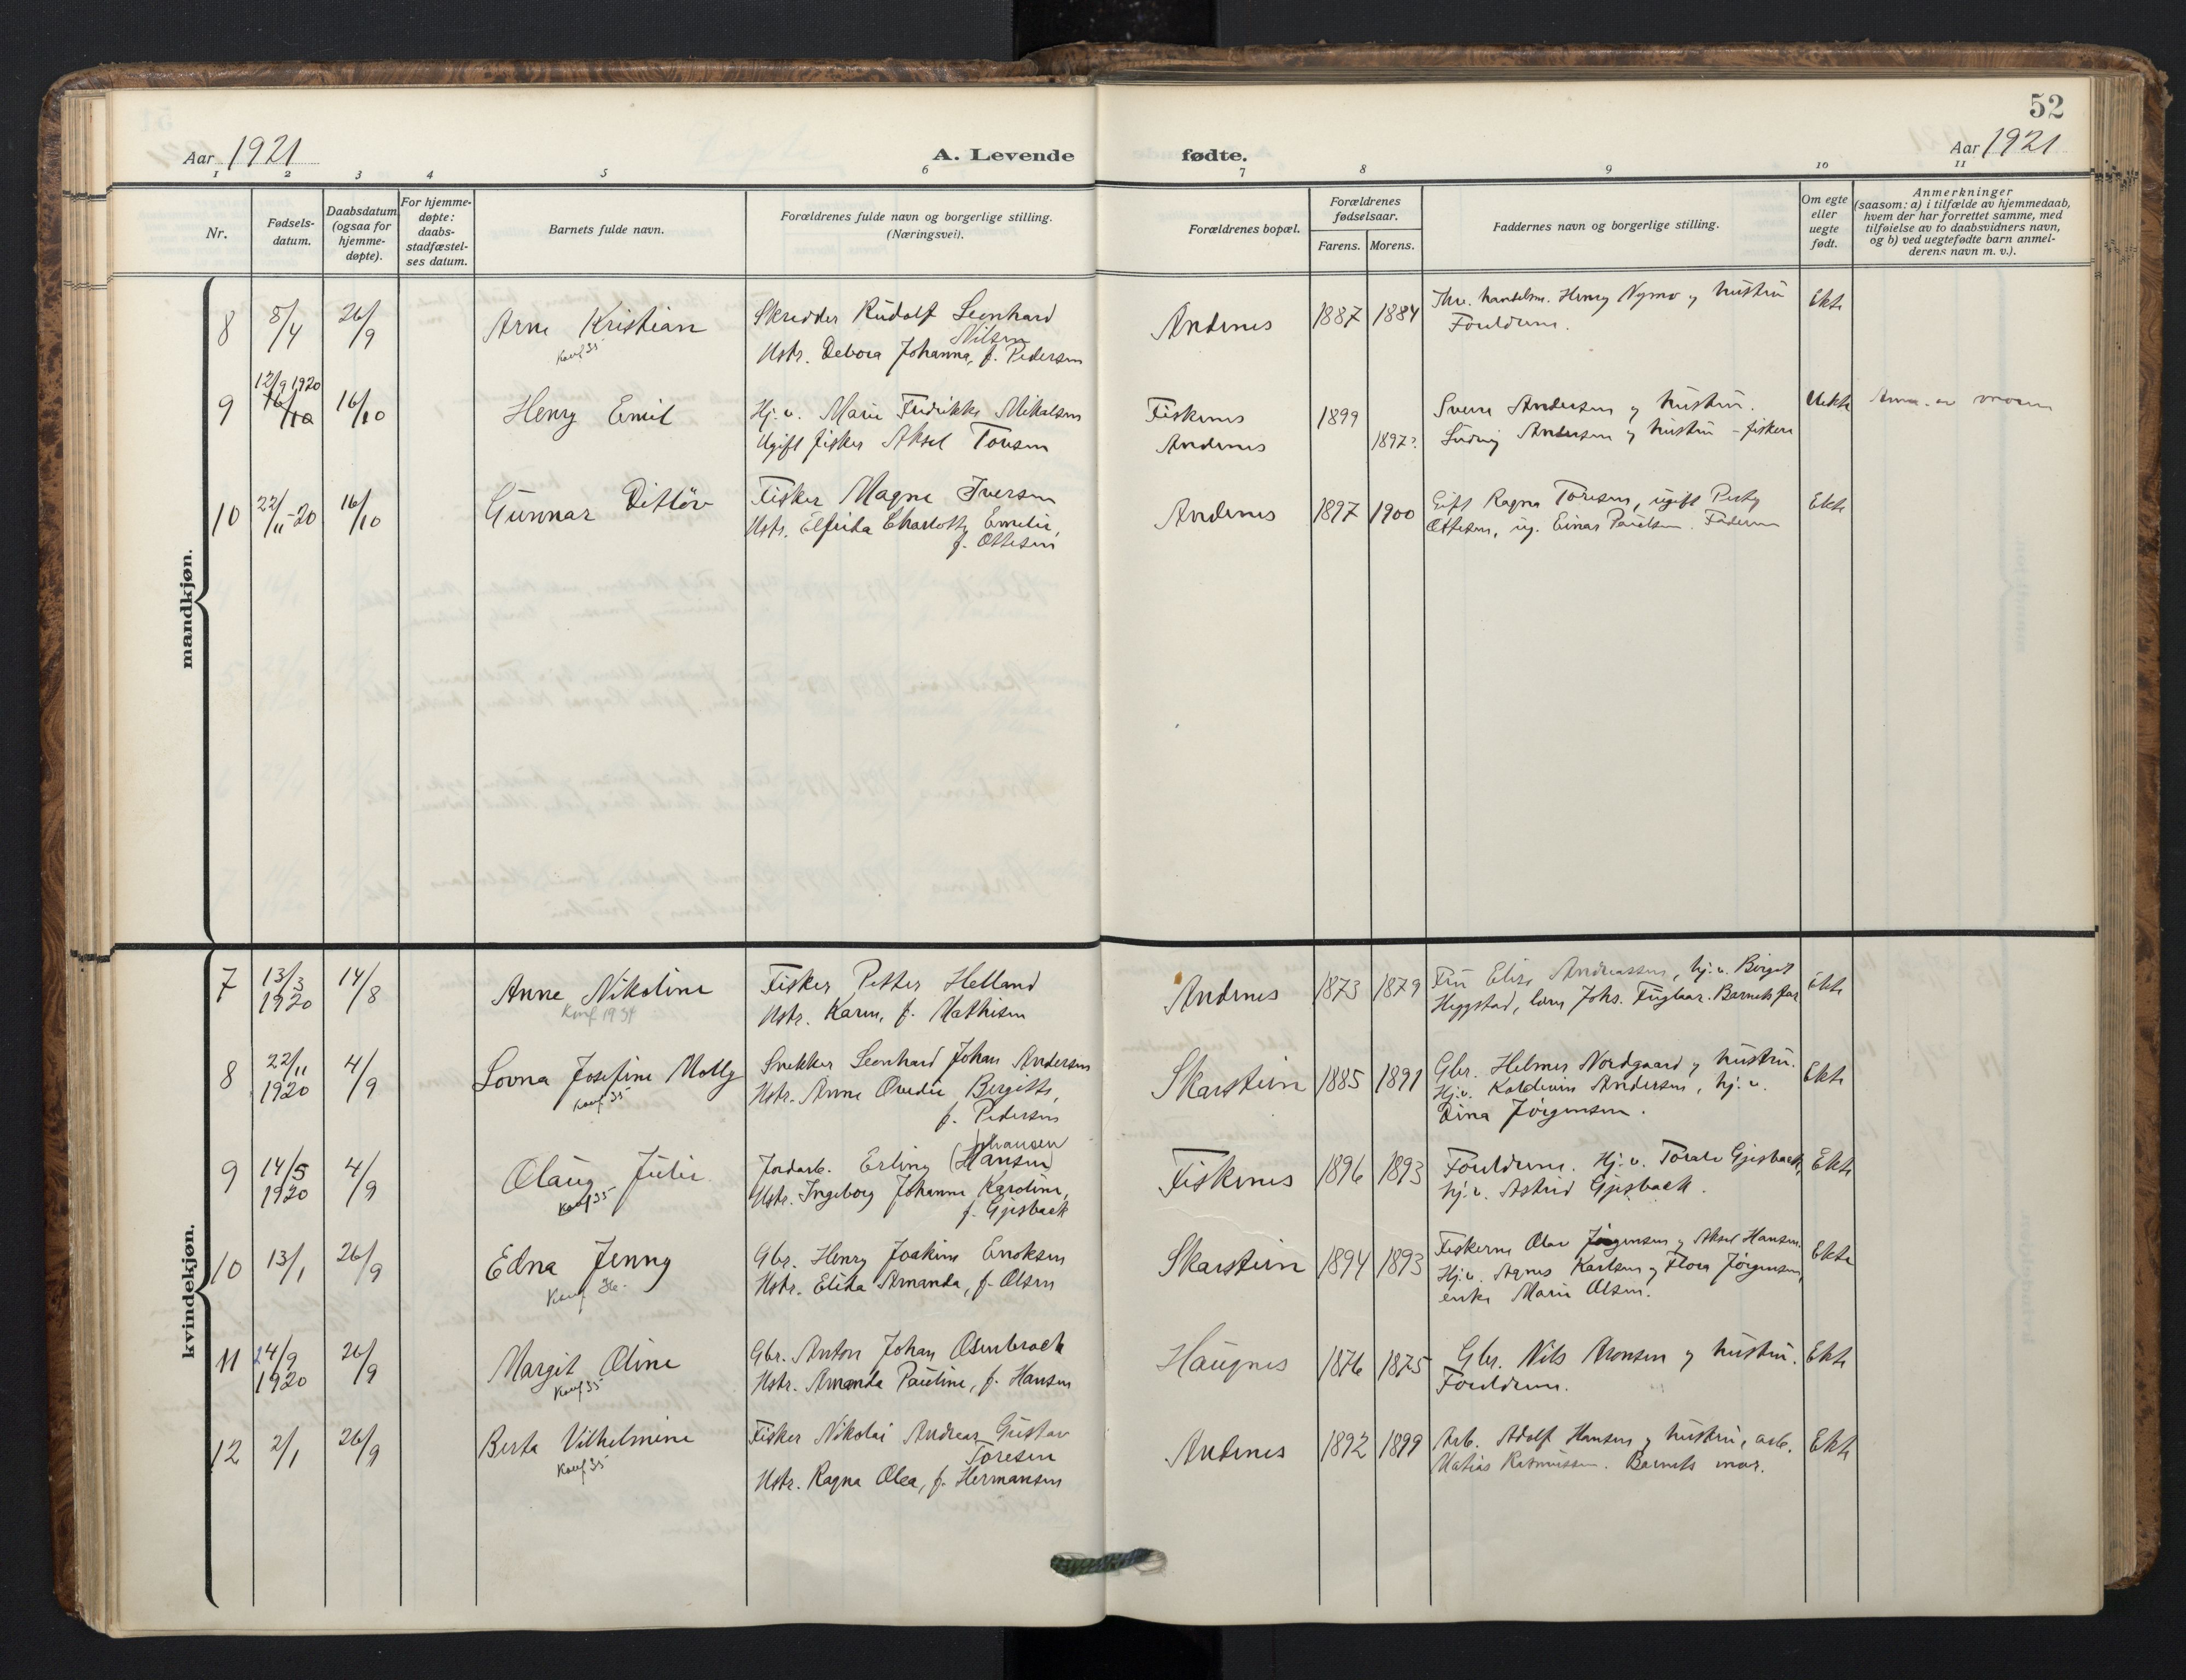 52
Aar 1921
A. Levende
fødte.
Aar 1921
1 2 3 4 5 6 7 8 9 10 11
Nr.
Fødsels-
datum.
Daabsdatum
(ogsaa for
hjemme-
døpte).
For hjemme-
døpte:
daabs-
stadfæstel-
ses datum.
Barnets fulde navn.
Forældrenes fulde navn og borgerlige stilling.
(Næringsvei).
Forældrenes bopæl.
Forældrenes
fødselsaar.
Farens. Morens.
Faddernes navn og borgerlige stilling.
Om egte
eller
uegte
født.
Anmerkninger
(saasom: a) i tilfælde av hjemmedaab,
hvem der har forrettet samme, med
tilføielse av to daabsvidners navn,
og b) ved uegtefødte barn anmel-
derens navn m. v.).
mandkjøn.
8 8/4 26/9 Arne Kristian Skredder Rudolf Leonhard Andenes 1887 1884 handelsm. Henry Nymo og hustru Ekte
Nilsen
Konf 35
Hstr. Debora Johanna, f. Pedersen
Foreldrene.
12/9 1920
9 16/10 16/10 Henry Emil Hj. v. Marie Fredrikke Mikalsen Fiskenes 1899 Sverre Andersen og hustru. Uekte Anm. av moren
Ugift fisker Aksel Toresen Andenes 1897? Ludvig Andersen og hustru - fiskere
10 22/11-20 16/10 Gunnar Ditløv Fisker Magne Iversen Andenes 1897 1900 Gift Ragna Toresen, ugift Ekte
Hstr. Elfrida Charlotte Emelie,
f. Ottesen
Ottesen, ug. Einar Paulsen. Faderen
kvindekjøn.
7 13/3 1920 14/8 Anne Nikoline Fisker Petter Helland Andenes 1873 1879 Fru Elise Andreassen, hj. v. Birgit Ekte
Konf 1934
Hstr. Karen, f. Mathisen
Heggstad, lærer Johs. Fuglaar. Barnets far
8 22/11 1920 4/9 Lovna Josefine Molly Snekker Leonhard Johan Andersen Skarstein 1885 1891 Gbr. Helmer Nordgaard og hustru. Ekte
Konf 35
Hstr. Anne Ovedie Bergitte,
f. Pedersen
Hj. v. Andersen, hj. v.
Dina Jørgensen.
9 14/5 1920 4/9 Olaug Julie Jordarb. Erling (Hansen) Johansen Fiskenes 1896 1893 Foreldrene. Hj. v. Gjesbakk, Ekte
Konf 35
Hstr. Ingeborg Johanne Karoline,
f. Gjesbakk
hj. v. Astrid Gjesbakk.
10 13/1 26/9 Edna Jenny Gbr. Henry Joakim Enoksen Skarstein 1894 1893 Fiskerne Olav Jørgensen og Aksel Hansen. Ekte
Konf 36.
Hstr. Elida Amanda, f. Olsen
Hj. v. Agnes Karlsen og Flora Jørgensen,
enke Marie Olsen.
11 24/9 1920 26/9 Margit Oline Gbr. Anton Johan Osenbroch Haugnes 1876 1875 Gbr. Nils Aronsen og hustru. Ekte
Konf 35
Hstr. Amanda Pauline, f. Hansen
Foreldrene.
12 2/1 26/9 Berta Vilhelmine Fisker Nikolai Andreas Gustav Andenes 1892 1899 Arb. Adolf Hansen og hustru, arb. Ekte
Toresen
Konf 35
Hstr. Ragna Olea, f. Hermansen
Matias Rasmussen. Barnets mor.